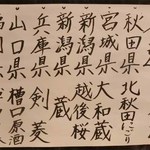 秋田県 北秋田にごり
宮城県 大和蔵
新潟県 越後桜
新潟県 蔵
兵庫県 剣菱
山口県 槽口原酒